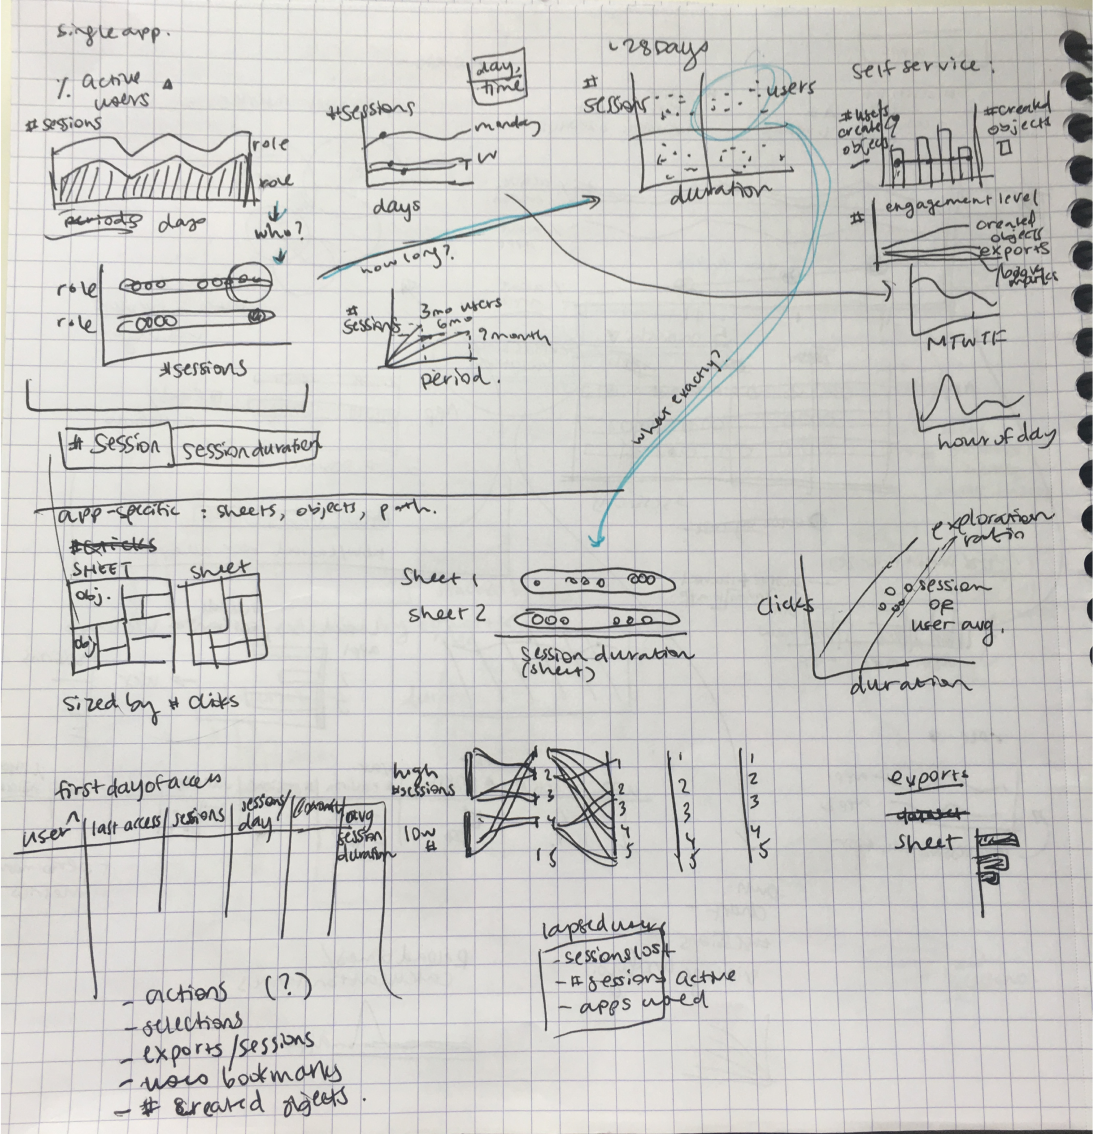 single app.
% active
users
# sessions
role
role
periods days
who?
role
role
# sessions
day,
time
# sessions
monday
W
T
days
how long?
#
sessions
3mo users
6mo
9 month
period.
28 Days
#
sessions
users
duration
what exactly?
self service:
# users
create
objects
# created
objects
engagement level
#
created
objects
exports
MTWTF
hour of day
# session
session duration
app-specific : sheets, objects, path.
SHEET
sheet
obj.
obj
sized by # clicks
sheet 1
sheet 2
session duration
(sheet)
clicks
exploration
ratio
session
or
user avg.
duration
first day of access
user
last access
sessions
sessions/
day
avg
session
duration
high
#sessions
low
#
1
2
3
4
5
1
2
3
4
5
1
2
3
4
5
1
2
3
4
5
exports
sheet
lapsed users
- sessions lost
- # sessions active
- apps used
- actions (?)
- selections
- exports/sessions
- uses bookmarks
- # created objects.